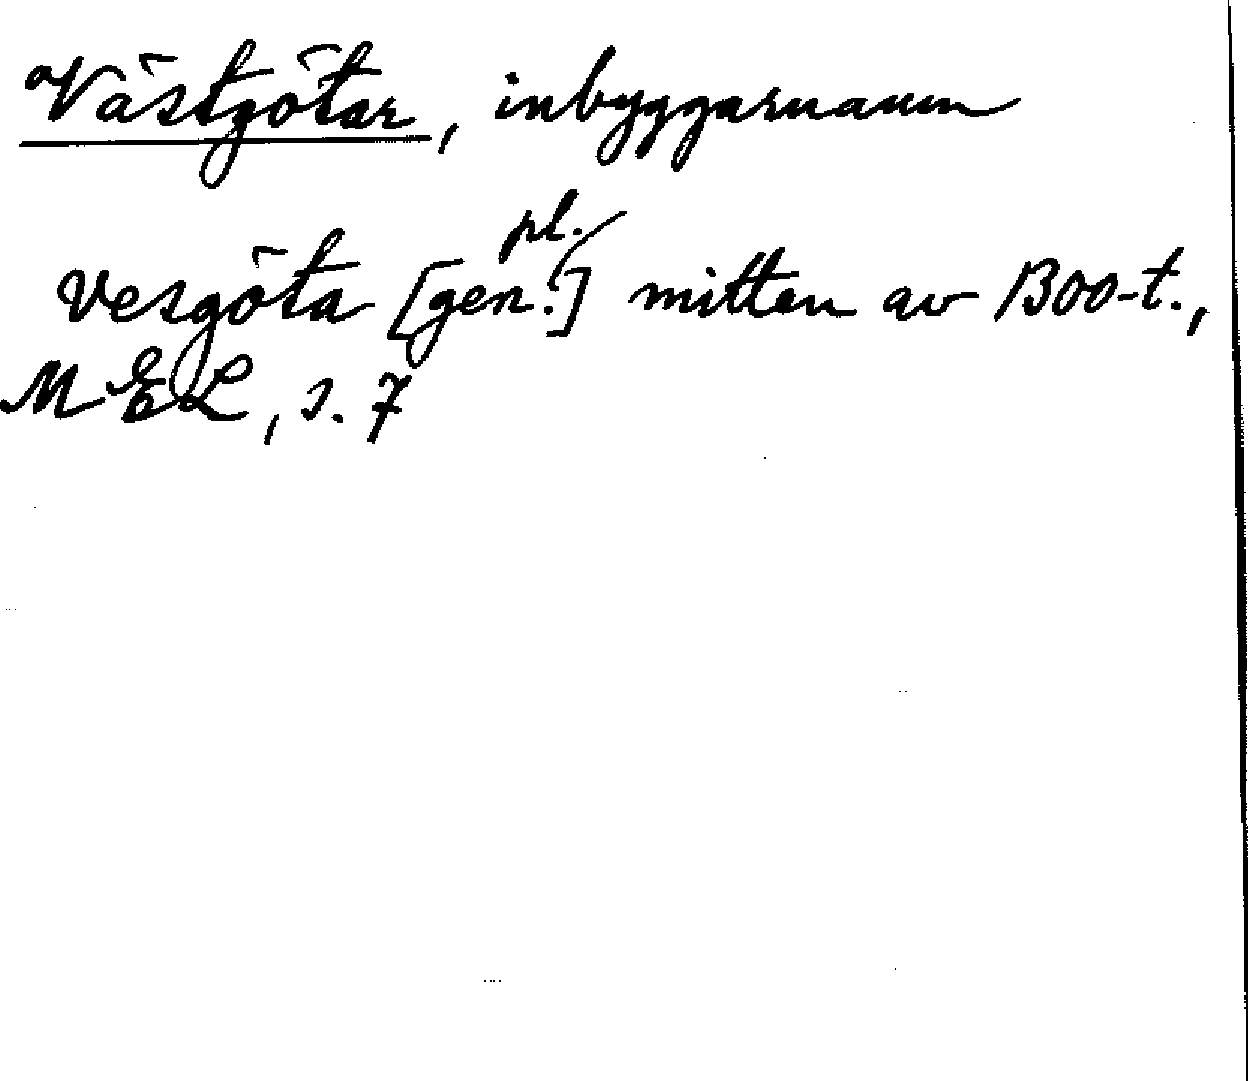 Västgötar, inbyggarnamn
Vesgöta [gen. pl.] mitten av 1300-t.,
MEL, s. 7